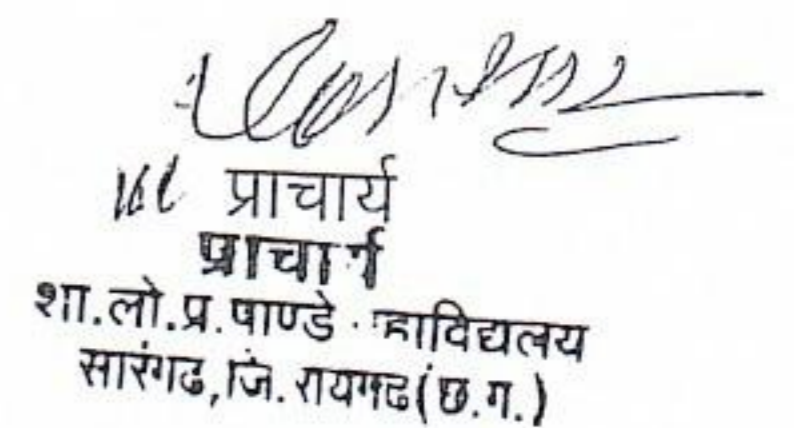 प्राचार्य
प्राचार्य
शा.लो.प्र.पाण्डे महाविद्यलय
सारंगढ,जि.रायगढ(छ.ग.)